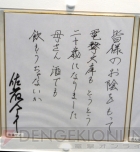 皆様のお陰をもって
電撃大賞もとうとう
二十歳になりました
母さん酒でも
飲もうぢゃないか
DENGEKIONLINE